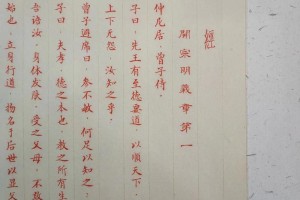 開宗明義章第一
仲尼居，曾子侍。
子曰：先王有至德要道，以順天下，
上下无怨。汝知之乎。
曾子避席曰：参不敏，何足以知之；
子曰：夫孝，德之本也，教之所有生
吾语汝，身体发肤，受之父母，不敢
始也，立身行道，扬名于后世以显父